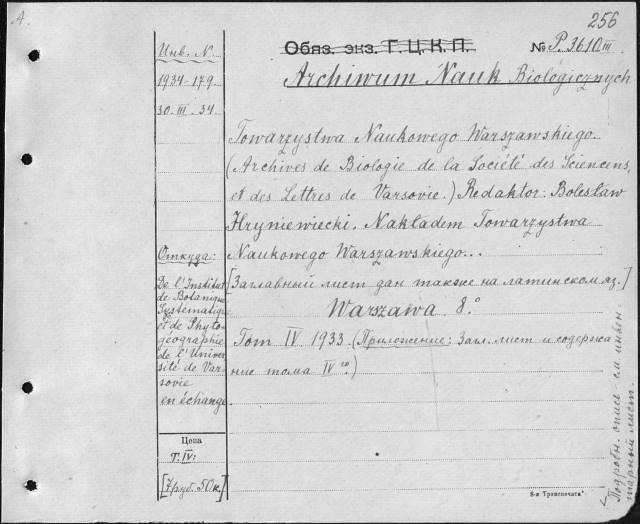 A.
256
Инв. N.
1934-179
30. III. 34
Обяз. экз. Г. Ц. К. П.
№ P. 3610 III
Archiwum Nauk Biologicznych
Towarzystwa Naukowego Warszawskiego
(Archives de Biologie de la Société des Sciencens,
et des Lettres de Varsovie.) Redaktor: Bolesław
Hryniewiecki. Nakładem Towarzystwa
Naukowego Warszawskiego...
[Заглавный лист дан также на латинском яз.]
Warszawa 8.°
Tom IV 1933 (Приложение: Загл. лист и содержа
ние тома IV го.)
Откуда:
De l'Institut
de Botanique
Systematique
et de Phyto-
géographie
de l'Univer
sité de Var
sovie
en échange.
Цена
T. IV:
[7 руб. 50 к.]
Подробн. опись - см. инвен.
тарный лист
8-я Транспечать